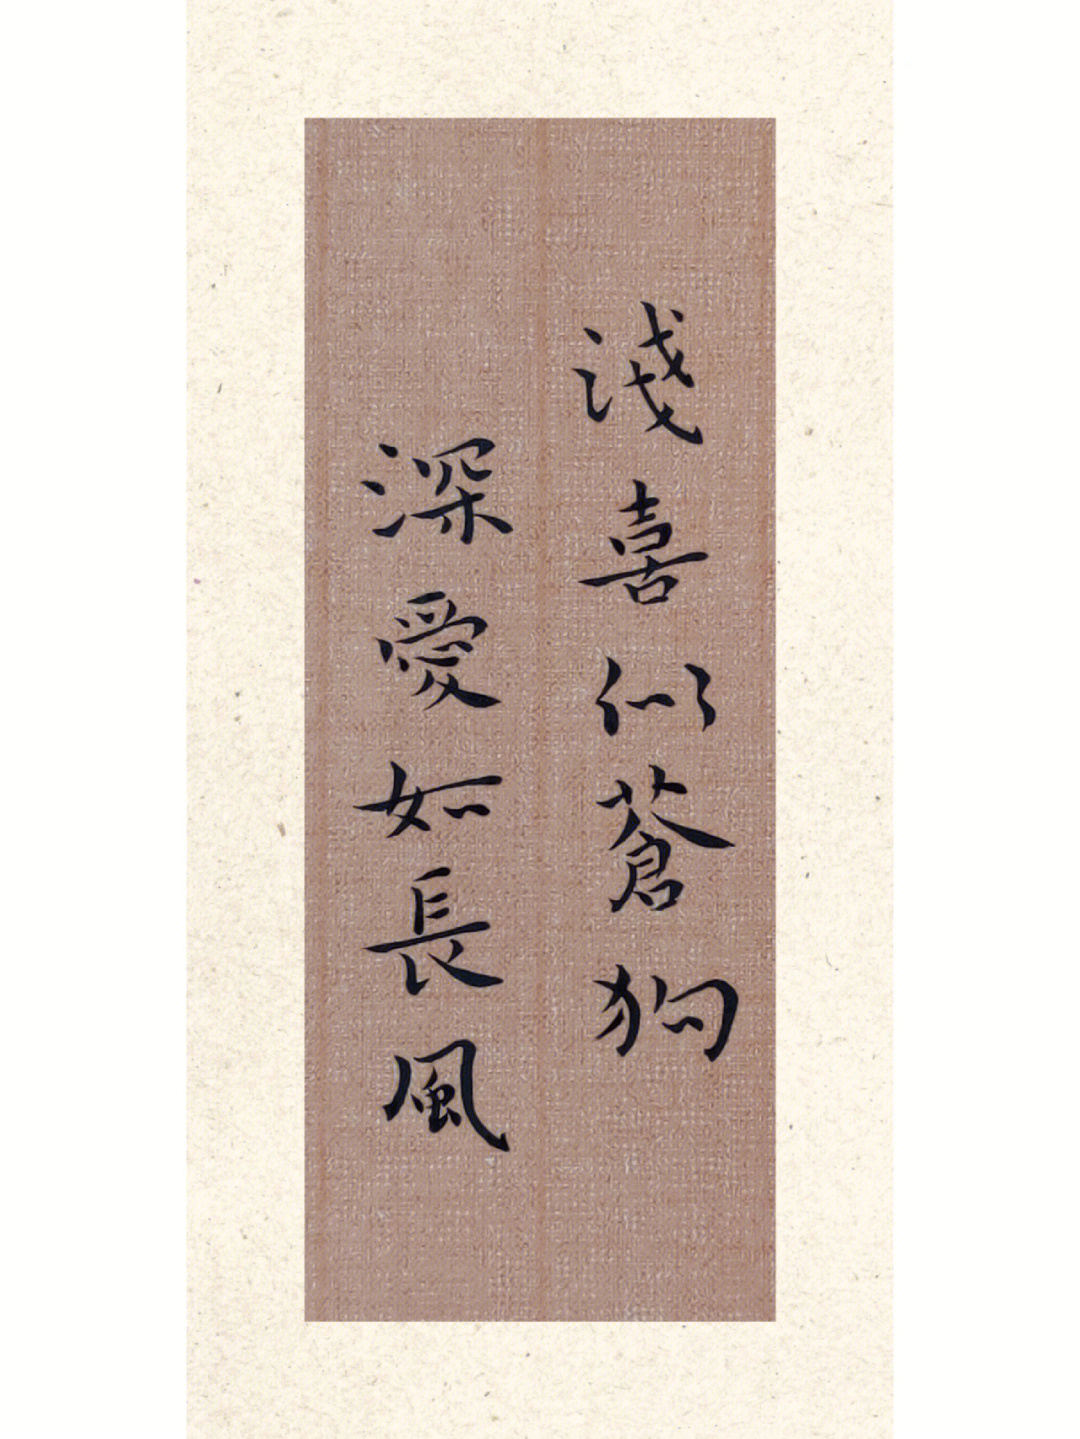 淺喜似蒼狗
深愛如長風